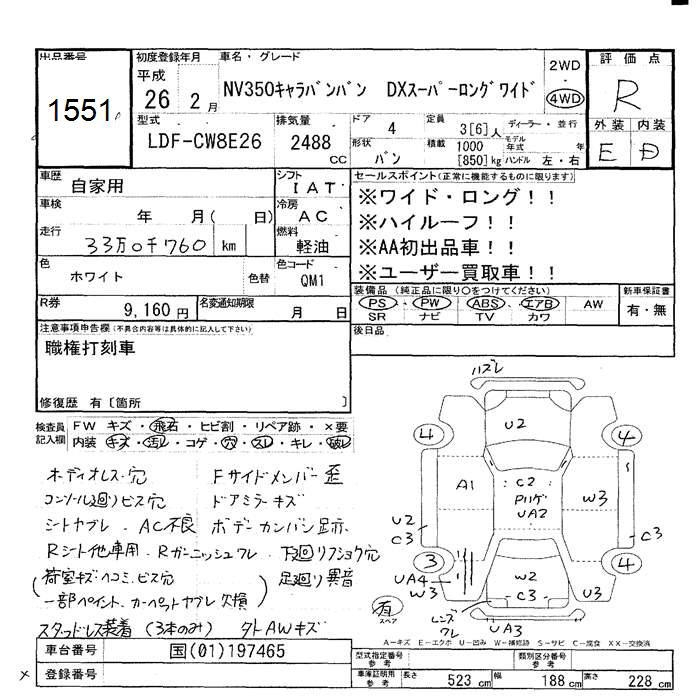 出品番号
1551
初度登録年月
平成
26 2月
車名・グレード
NV350キャラバンバン DXスーパーロングワイド
2WD
4WD
評価点
R
外装 内装
E D
型式
LDF-CW8E26
排気量
2488
CC
ドア
4
定員
3[6]人
ディーラー・並行
モデル年式 年
形状
バン
積載
1000
[850]kg
ハンドル 左・右
車歴
自家用
シフト
IAT
車検
年 月( 日)
冷房
AC
走行
33万0千760 km
燃料
軽油
色
ホワイト
色替
色コード
QM1
R券
9,160円
名変通知期限
月 日
セールスポイント(正常に機能するものに限ります)
※ワイド・ロング！！
※ハイルーフ！！
※AA初出品車！！
※ユーザー買取車！！
装備品(純正品に限り○をつけてください)
PS・PW・ABS・エアB・AW
SR ナビ TV カワ
新車保証書
有・無
後日品
注意事項申告欄(不具合内容等は具体的に記入して下さい)
職権打刻車
修復歴 有〔箇所 〕
検査員記入欄
FW キズ・飛石・ヒビ割・リペア跡・×要
内装 キズ・汚レ・コゲ・穴・スレ・キレ・破レ
ボディオレス・穴
Fサイドメンバー歪
コンソール廻リビス穴
ドアミラーキズ
シートヤブレ・AC不良
ボデーカンバン跡
Rシート他車用・Rガーニッシュワレ・下廻リフショク穴
(荷室キズ・ヘコミ・ビス穴
足廻リ異音
一部ペイント、カーペットヤブレ欠損)
スタッドレス装着(3本のみ) タトAWキズ
ハズレ
U2
4
4
A1
C2
Pハゲ
UA2
W3
U2
C3
C3
3
4
UA4
W3
W2
C3
U3
有
スペア
レンズワレ
UA3
A-キズ E-エクボ U-凹み W-補修跡 S-サビ C-腐食 XX-交換済
車台番号
国(01)197465
登録番号
型式指定番号
参考
類別区分番号
参考
車庫証明用
参考
長さ 523 cm 幅 188 cm 高さ 228 cm
×